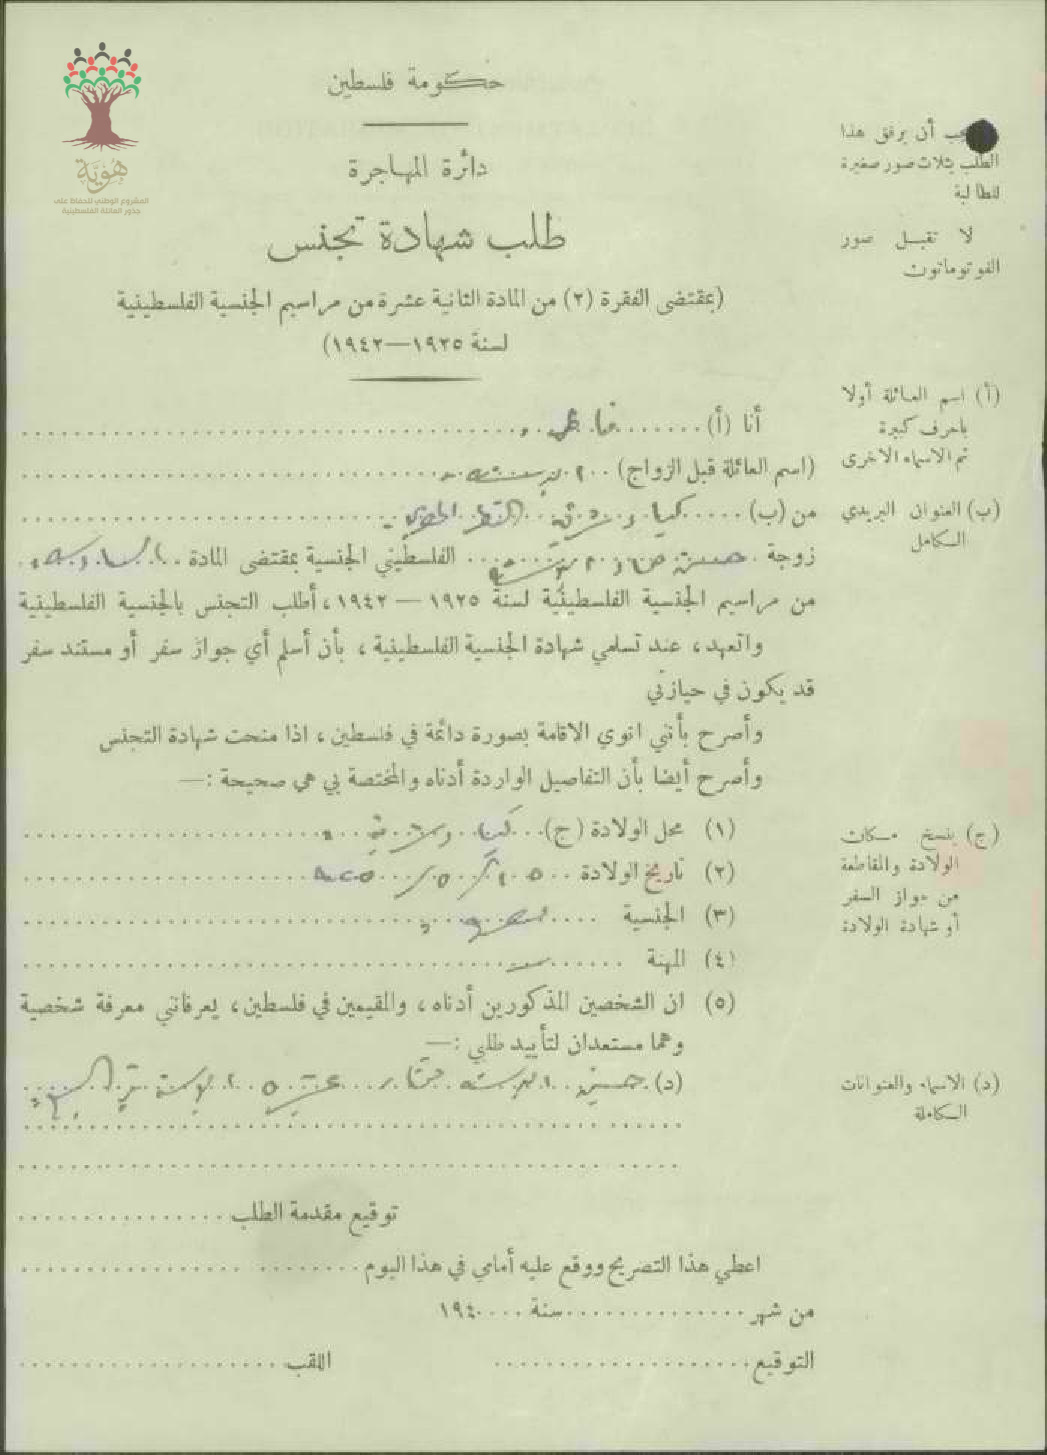 هُوِيَّة
المشروع الوطني للحفاظ على
جذور العائلة الفلسطينية
حكومة فلسطين
دائرة المهاجرة
طلب شهادة تجنس
(بمقتضى الفقرة (٢) من المادة الثانية عشرة من مراسيم الجنسية الفلسطينية
لسنة ١٩٢٥—١٩٤٢)
يجب أن يرفق هذا
الطلب بثلاث صور صغيرة
للطالبة
لا تقبل صور
الفوتوماتون
(أ) اسم العائلة أولا
باحرف كبيرة
ثم الاسماء الاخرى
(ب) العنوان البريدي
الكامل
أنا (أ)
(اسم العائلة قبل الزواج)
من (ب)
زوجة حسين الفلسطيني الجنسية بمقتضى المادة
من مراسيم الجنسية الفلسطينية لسنة ١٩٢٥ — ١٩٤٢، أطلب التجنس بالجنسية الفلسطينية
واتعهد، عند تسلمي شهادة الجنسية الفلسطينية، بأن أسلم أي جواز سفر أو مستند سفر
قد يكون في حيازتي
وأصرح بأنني انوي الاقامة بصورة دائمة في فلسطين، اذا منحت شهادة التجنس
وأصرح أيضا بأن التفاصيل الواردة أدناه والمختصة بي هي صحيحة :—
(١) محل الولادة (ج)
(٢) تاريخ الولادة
(٣) الجنسية
(٤) المهنة
(٥) ان الشخصين المذكورين أدناه، والمقيمين في فلسطين، يعرفانني معرفة شخصية
وهما مستعدان لتأييد طلبي :—
(د) حسين
(ج) ينسخ مكان
الولادة والمقاطعة
من جواز السفر
أو شهادة الولادة
(د) الاسماء والعنوانات
الكاملة
توقيع مقدمة الطلب
اعطي هذا التصريح ووقع عليه أمامي في هذا اليوم
من شهر سنة ١٩٤٠
التوقيع اللقب